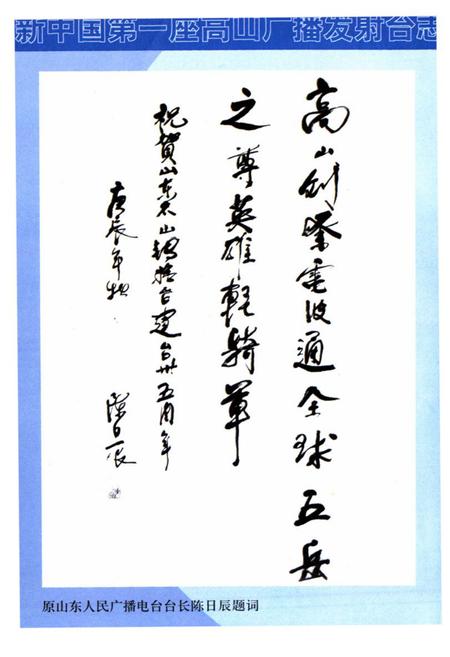 新中国第一座高山广播发射台志
高山创業電波通全球五岳
之尊英雄輕騎軍
祝賀山东泰山轉播台建台卅五周年
庚辰年秋
陳日辰
原山东人民广播电台台长陈日辰题词